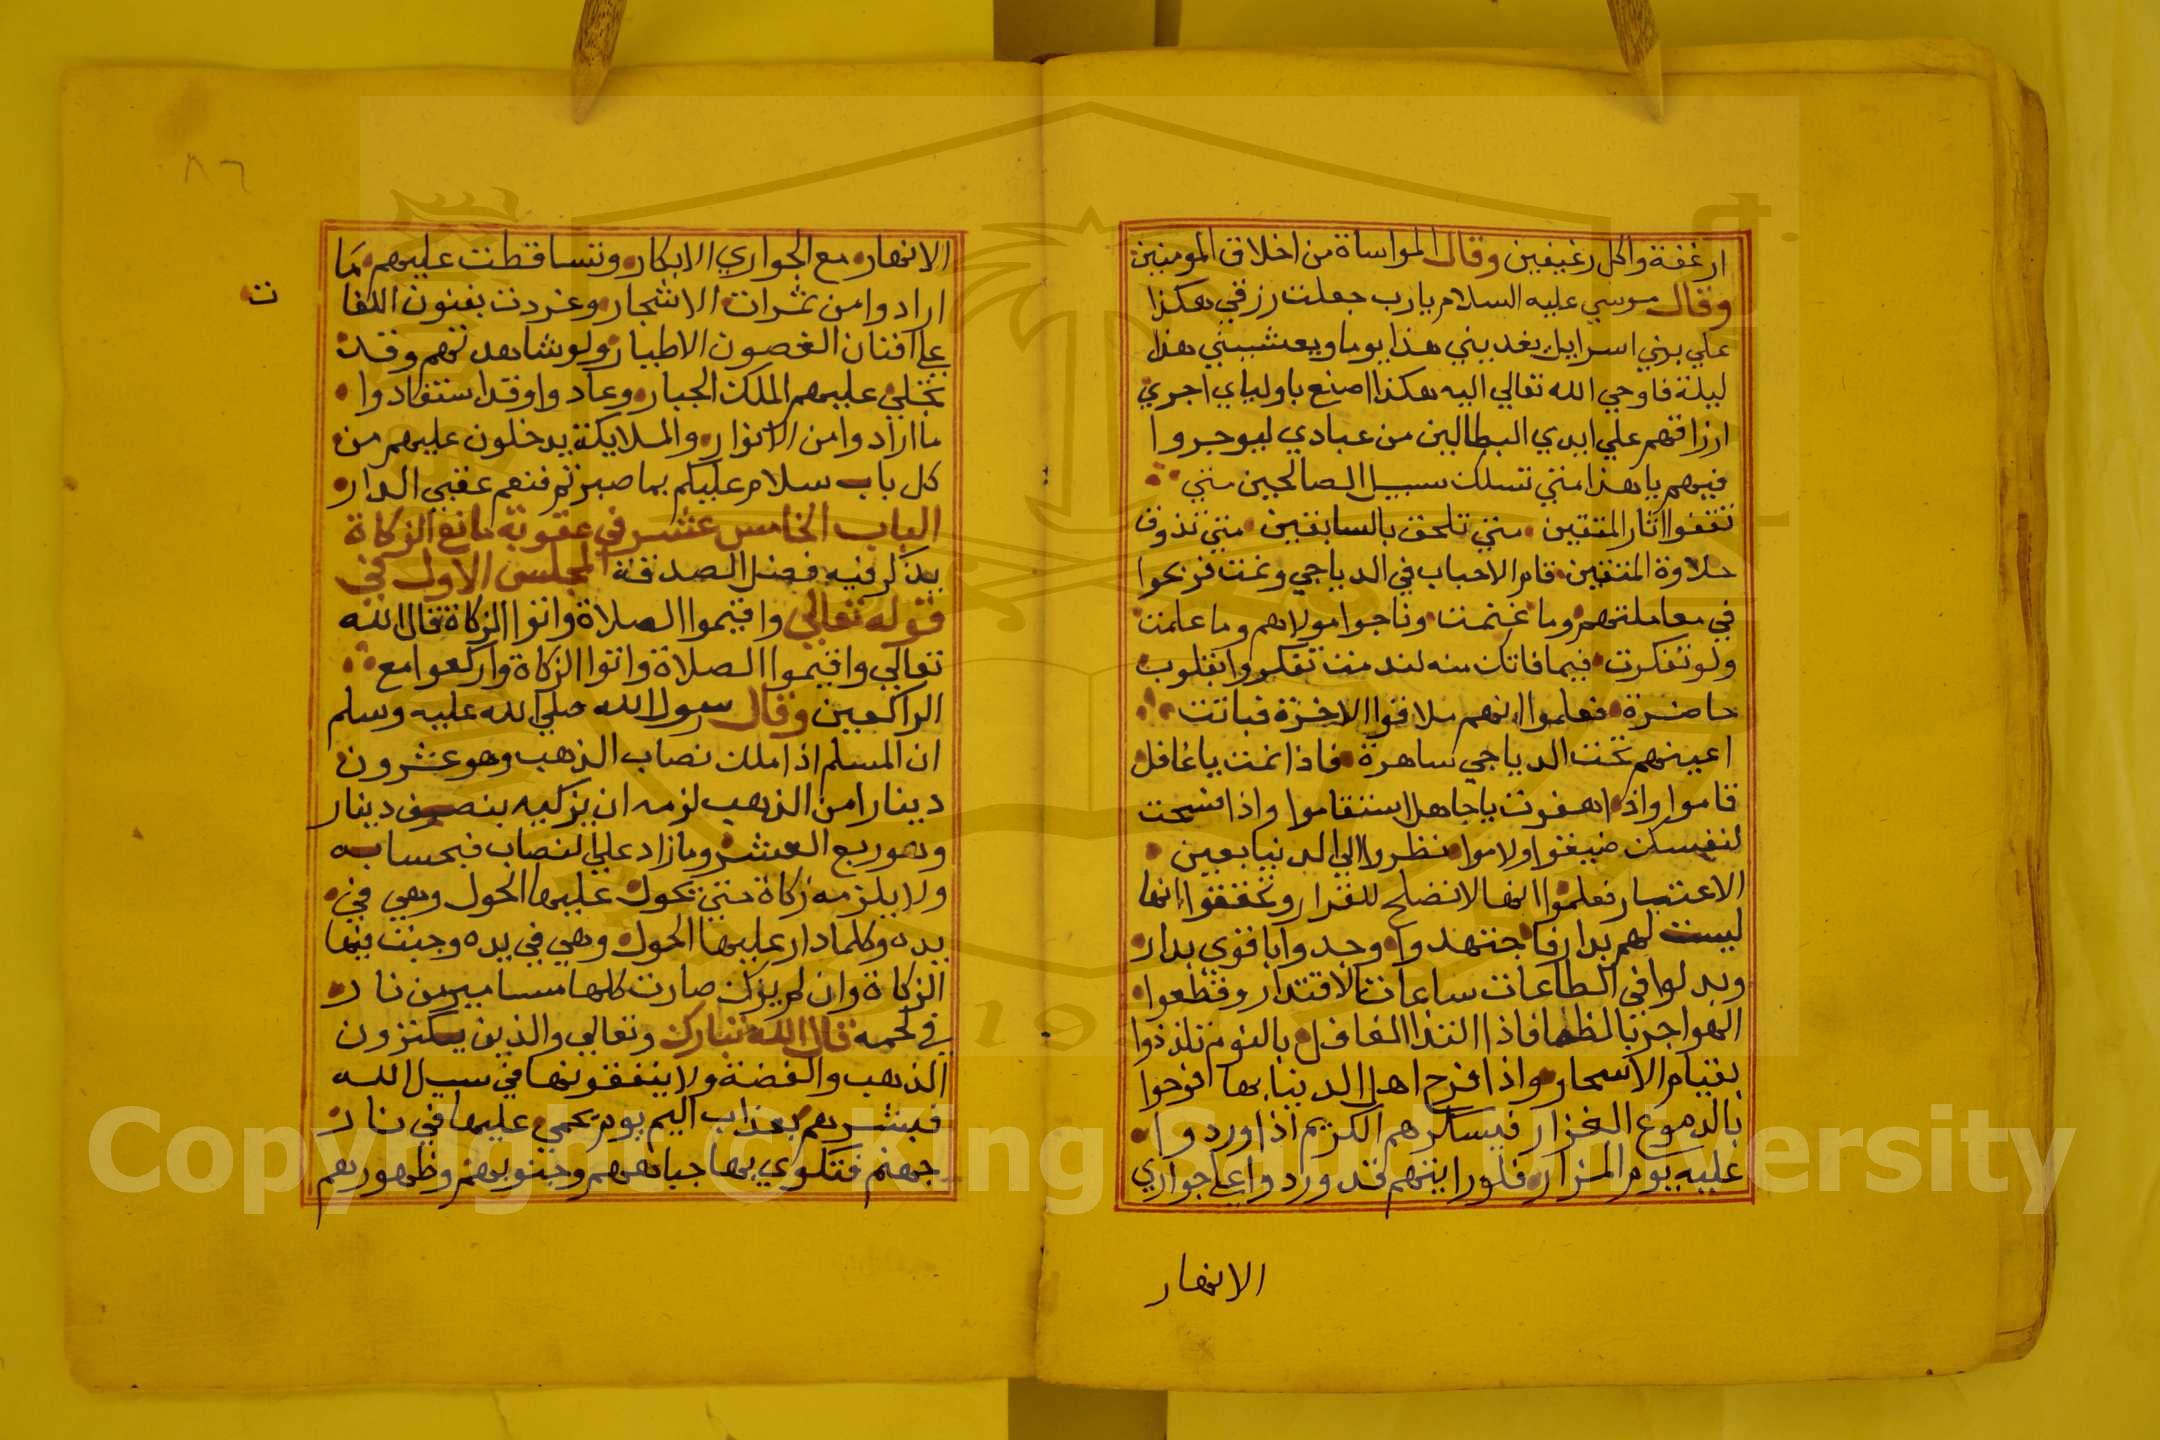 ارغفة واكل رغيفين وقال المواساة من اخلاق المومنين
وقال موسي عليه السلام يارب جعلت رزقي هكذا
علي بني اسرايل يغديني هذا يوما ويعشيني هذا
ليلة فاوحي الله تعالي اليه هكذا اصنع باوليائي اجري
ارزاقهم علي ايدي البطالين من عبادي ليوجروا
فيهم يا هذا متي تسلك سبيل الصالحين متي
تقفوا آثار المتقين متي تلحق بالسابقين متي تذوق
حلاوة المتقين قام الاحباب في الدياجي ونمت فربحوا
في معاملتهم وما غنمت وناجوا مولاهم وما علمت
ولو تفكرت فيما فاتك منه لندمت تفكروا بقلوب
حاضرة فعلموا انهم ملاقوا الاخرة فباتت
اعينهم تحت الدياجي ساهرة فاذا نمت يا غافل
قاموا واذا هفوت يا جاهل استقاموا واذا فسحت
لنفسك ضيقوا ولاموا نظروا الي الدنيا بعين
الاعتبار فعلموا انها لا تصلح للقرار وتحققوا انها
ليست لهم بدار فاجتهدوا وجدوا باقوي بدار
وبدلوا في الطاعات ساعات الاقتدار وقطعوا
الهواجر بالظما فاذا التذ الغافل بالنوم تلذذوا
بقيام الاسحار واذا فرح اهل الدنيا بها افرحوا
بالدموع الغزار فيسكرهم الكريم اذا وردوا
عليه يوم المزار فلو رايتهم قد وردوا علي جواري
الانهار
٨٦
الانهار مع الجواري الابكار وتساقطت عليهم ما
ارادوا من ثمرات الاشجار وغردت بفنون اللغا
ت
علي افنان الغصون الاطيار ولو شاهدتهم وقد
تجلي عليهم الملك الجبار وعادوا وقد استفادوا
ما ارادوا من الانوار والملايكة يدخلون عليهم من
كل باب سلام عليكم بما صبرتم فنعم عقبي الدار
الباب الخامس عشر في عقوبة مانع الزكاة
يذكر فيه فضل الصدقة المجلس الاول في
قوله تعالي واقيموا الصلاة واتوا الزكاة قال الله
تعالي واقيموا الصلاة واتوا الزكاة واركعوا مع
الراكعين وقال رسول الله صلي الله عليه وسلم
ان المسلم اذا ملك نصاب الذهب وهو عشرون
دينارا من الذهب لزمه ان يزكيه بنصف دينار
وهو ربع العشر وما زاد علي النصاب فبحسابه
ولا يلزمه زكاة حتي تحول عليها الحول وهي في
يده وكلما دار عليها الحول وهي في يده وجبت فيها
الزكاة وان لم يزك صارت كلها مسامير من نار
في لحمه قال الله تبارك وتعالي والذين يكنزون
الذهب والفضة ولا ينفقونها في سبيل الله
فبشرهم بعذاب اليم يوم يحمي عليها في نار
جهنم فتكوي بها جباههم وجنوبهم وظهورهم
Copyright © King Saud University